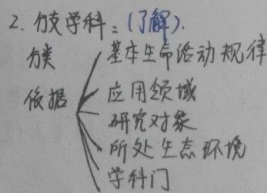 2. 分支学科:(了解).
分类依据
基本生命活动规律
应用领域
研究对象
所处生态环境
学科门